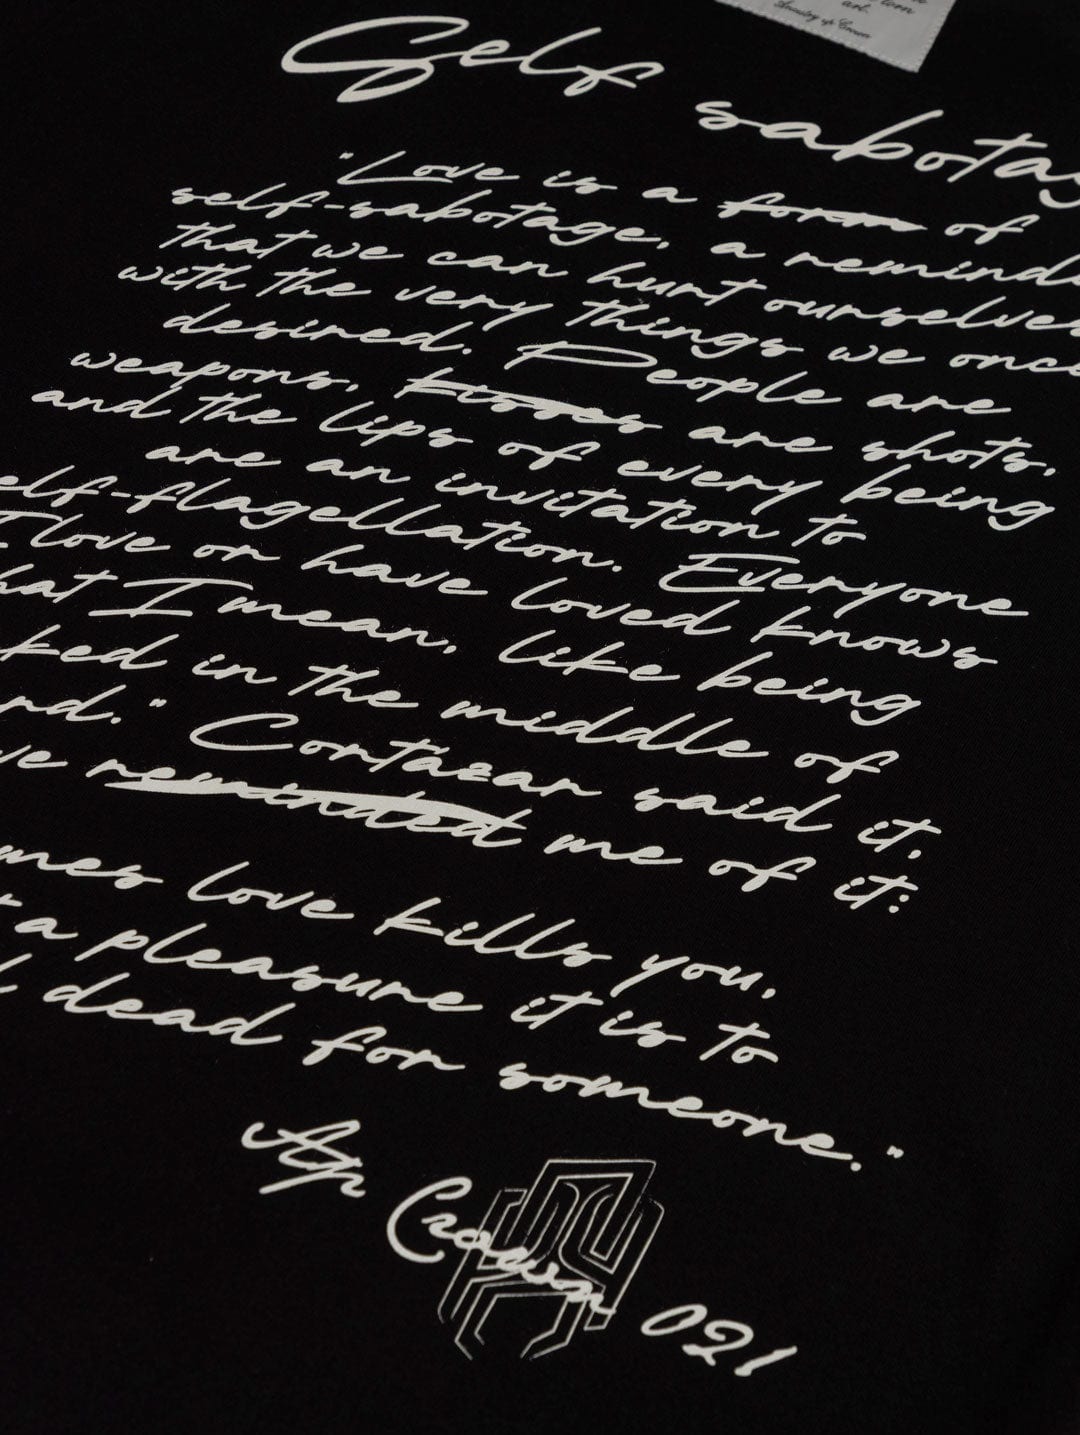 tern
art.
Anxiety ap Crown
Self sabotag
"Love is a form of
self-sabotage, a reminde
that we can hurt ourselves
with the very things we once
desired. People are
weapons, kisses are shots,
and the lips of every being
are an invitation to
elf-flagellation. Everyone
I love or have loved knows
hat I mean, like being
ked in the middle of
nd." Cortazar said it,
ve reminded me of it:
mes love kills you,
a pleasure it is to
dead for someone."
Ap Crown 021